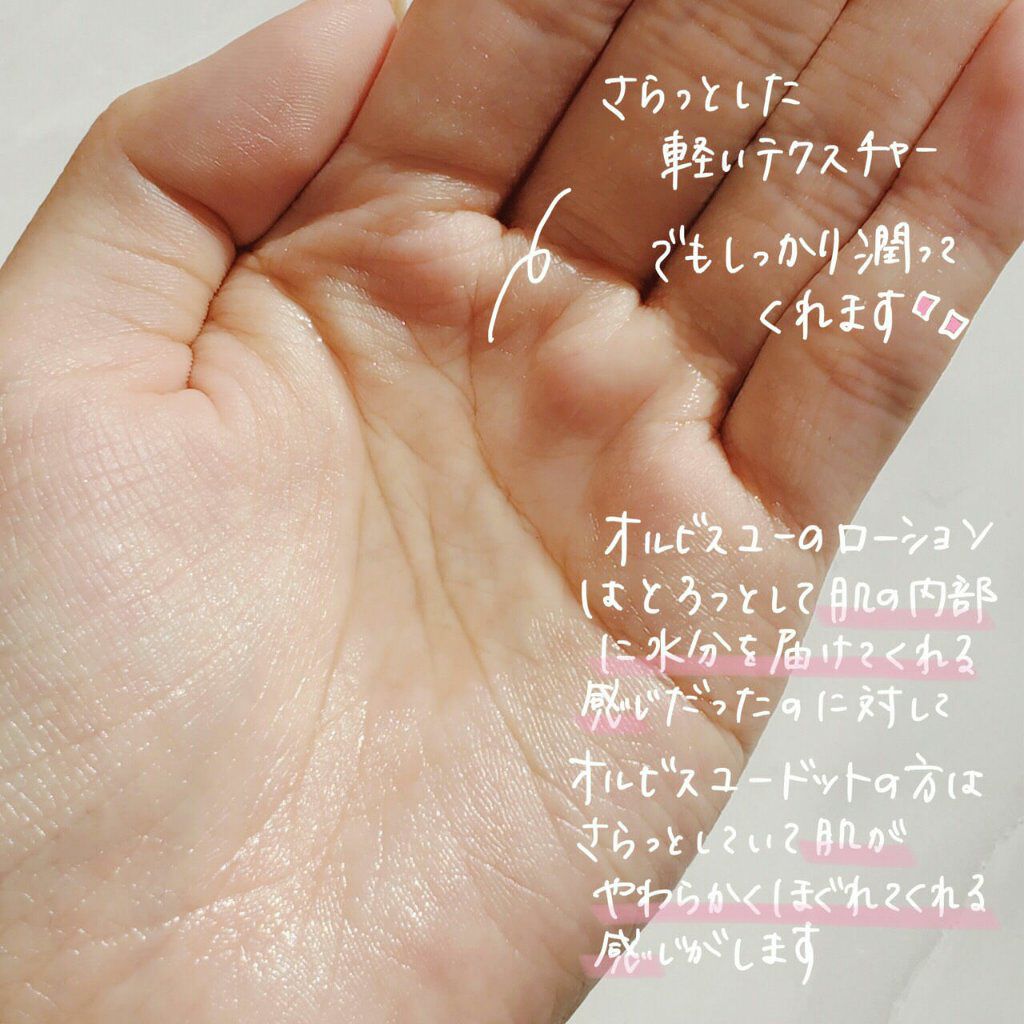 さらっとした
軽いテクスチャー
でもしっかり潤って
くれます
オルビスユーのローション
はとろっとして肌の内部
に水分を届けてくれる
感じだったのに対して
オルビスユードットの方は
さらっとしていて肌が
やわらかくほぐれてくれる
感じがします